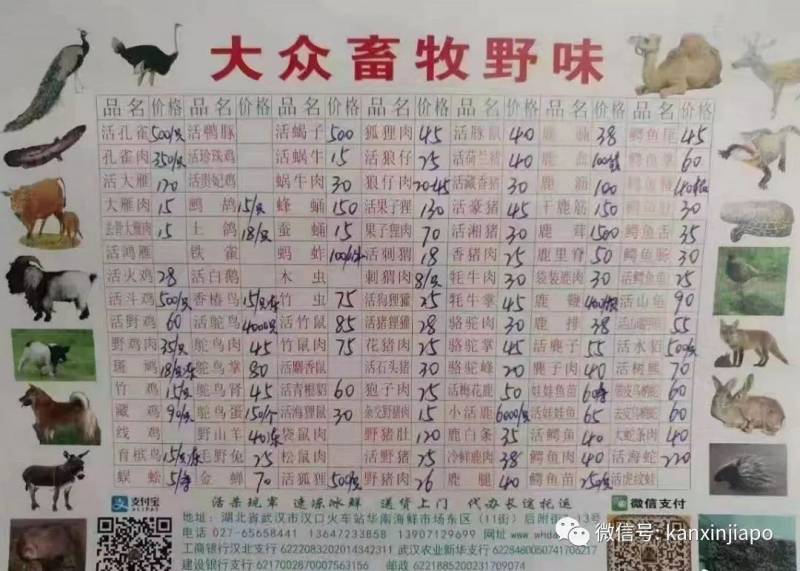 大众畜牧野味
品名 价格 品名 价格 品名 价格 品名 价格 品名 价格 品名 价格 品名 价格
活孔雀 500/只 活鸭豚 活蝎子 500 狐狸肉 45 活豚鼠 40 38 鳄鱼尾 45
孔雀肉 350/只 活珍珠鸡 活蜗牛 15 活狼仔 25 活荷兰猪 40 鳄鱼掌 60
活大雁 120 活贵妃鸡 蜗牛肉 30 狼仔肉 活藏香猪 30 鹿筋 100
大雁肉 15 鹧鸪 15/只 蜂蛹 150 活果子狸 130 活豪猪 45 干鹿筋 150 鳄鱼肚 30
去骨大雁肉 15 土鸽 18/只 蚕蛹 15 果子狸肉 70 活湘猪 30 鹿茸 1500 鳄鱼舌 35
活鸿雁 铁雀 蚂蚱 活刺猬 18 香猪肉 25 鹿里脊 50 鳄鱼肠 30
活火鸡 28 活白鹅 木虫 刺猬肉 8/只 牦牛肉 30 袋装鹿肉 30 活鳄鱼龟 25
活斗鸡 500/只 香椿鸟 竹虫 75 活狗狸獾 25 牦牛掌 45 鹿鞭 活山龟 90
活野鸡 60 活鸵鸟 4000/只 活竹鼠 85 活猪狸獾 28 骆驼肉 30 鹿排 38 55
野鸡肉 35/只 鸵鸟肉 45 竹鼠肉 75 花猪肉 25 骆驼掌 45 活麂子 55 活水貂 500/只
斑鸠 鸵鸟掌 80 活麝香鼠 活石头猪 30 骆驼峰 20 麂子肉 40 活树熊 70
竹鸡 15/只 鸵鸟肾 45 活青根貂 60 狍子肉 25 活梅花鹿 50 娃娃鱼苗 60
藏鸡 90/只 鸵鸟蛋 150/个 活海狸鼠 30 15 小活鹿 6000/只 活娃娃鱼 65 60
线鸡 野山羊 袋鼠肉 野猪肚 120 鹿白条 35 活鳄鱼 40 大蛇条肉 40
育槟鸟 毛野兔 25 松鼠肉 活野猪 25 冷鲜鹿肉 38 鳄鱼肉 40 活海蛇 220
蜈蚣 金蝉 70 活狐狸 500/只 野猪肉 25 鹿腿 40 鳄鱼苗 活虎纹蛙
支付宝 ALIPAY 活杀现宰 速冻冰鲜 送货上门 代办长途托运 微信支付
地址：湖北省武汉市汉口火车站华南海鲜市场东区（11街）
电话 027-65658441 13647233858 13907129699 网址
工商银行汉北支行 6222083202014342311 武汉农业新华支行 6228480050741706217
建设银行 6217002870007563156 邮政 6221885200231709074
微信号: kanxinjiapo